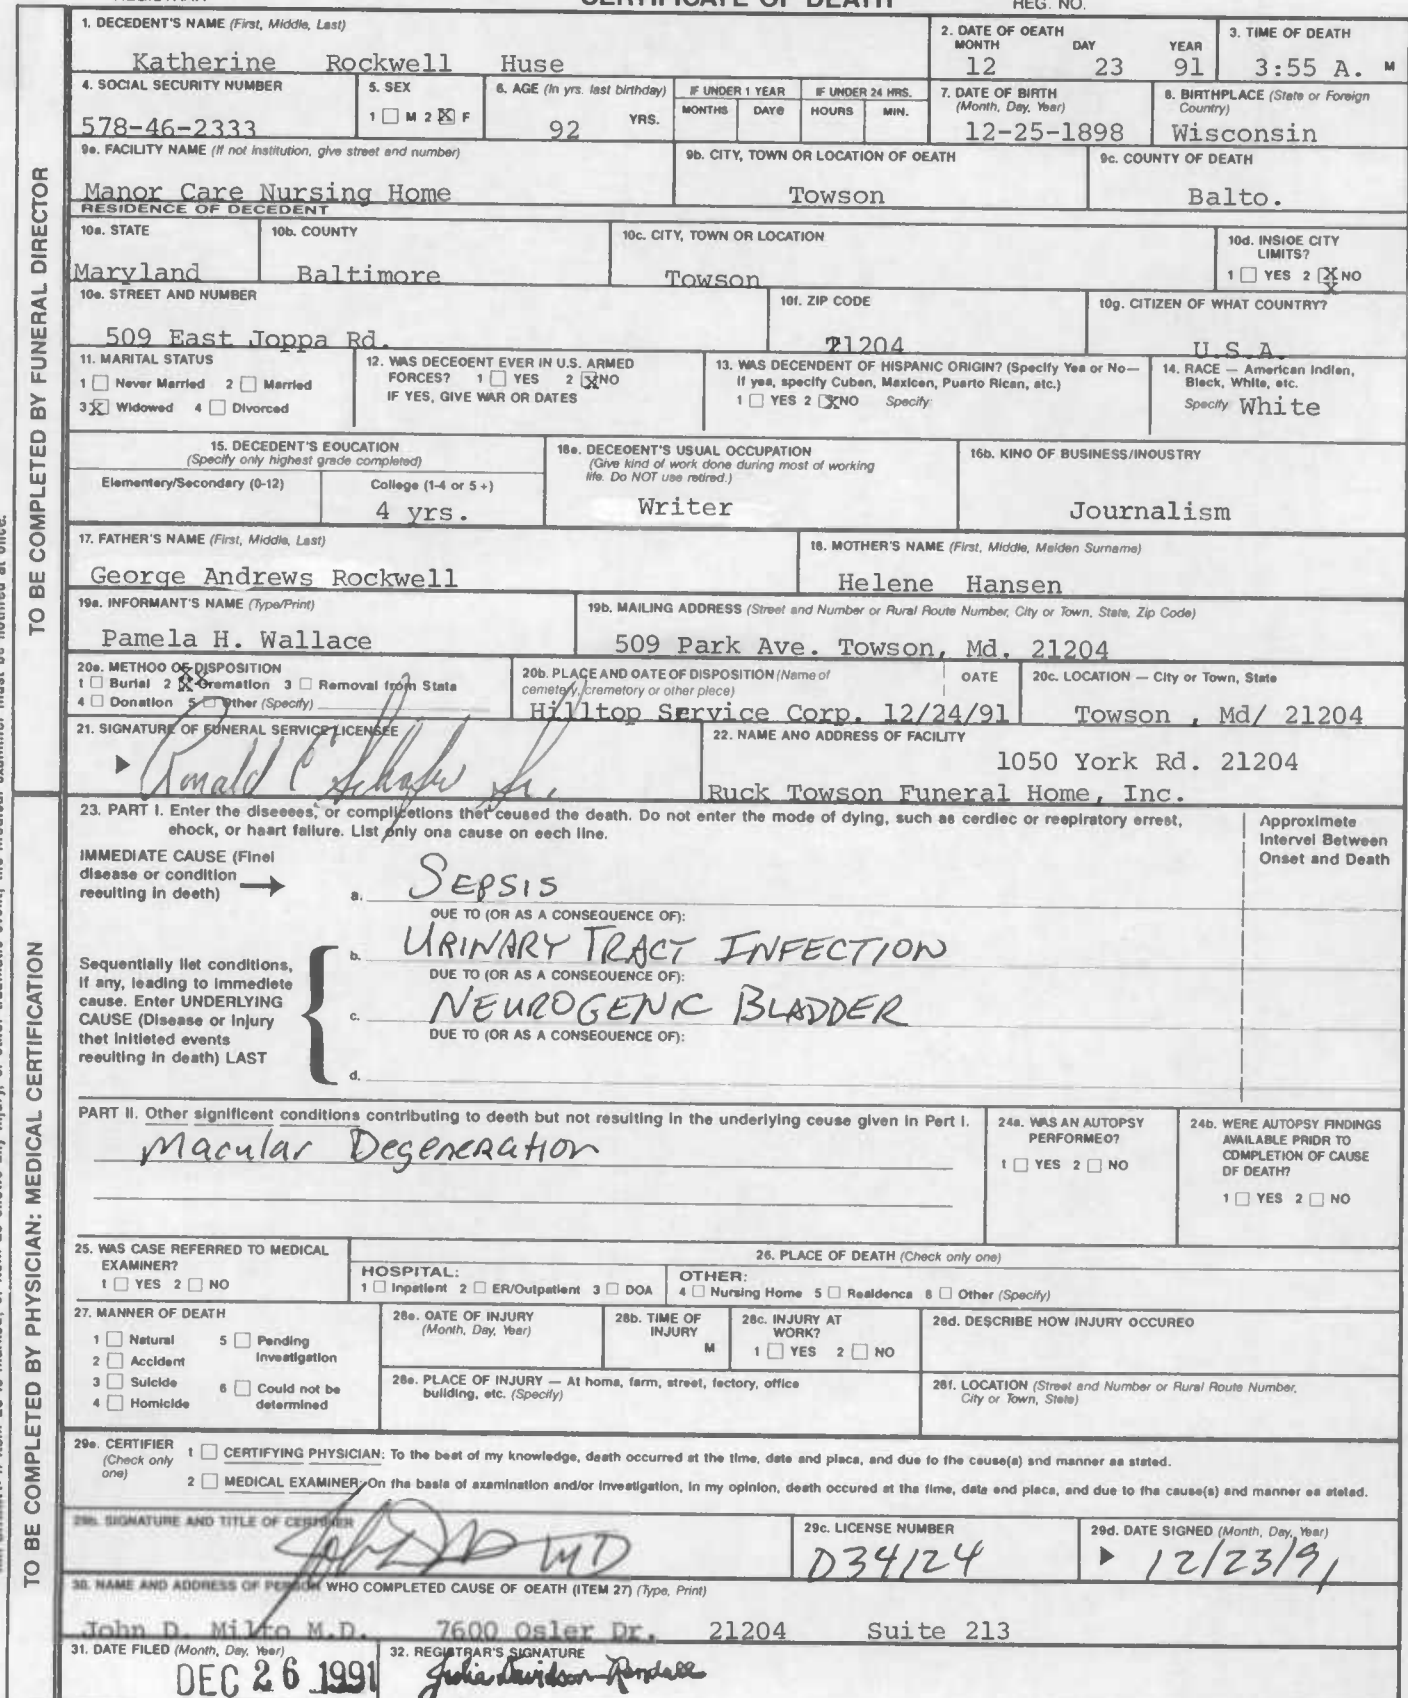 CERTIFICATE OF DEATH
REG. NO.
1. DECEDENT'S NAME (First, Middle, Last)
Katherine Rockwell Huse
2. DATE OF DEATH
MONTH DAY YEAR
12 23 91
3. TIME OF DEATH
3:55 A. M
4. SOCIAL SECURITY NUMBER
578-46-2333
5. SEX
1 M 2 X F
6. AGE (In yrs. last birthday)
92 YRS.
IF UNDER 1 YEAR
MONTHS DAYS
IF UNDER 24 HRS.
HOURS MIN.
7. DATE OF BIRTH
(Month, Day, Year)
12-25-1898
8. BIRTHPLACE (State or Foreign
Country)
Wisconsin
9a. FACILITY NAME (If not institution, give street and number)
Manor Care Nursing Home
9b. CITY, TOWN OR LOCATION OF DEATH
Towson
9c. COUNTY OF DEATH
Balto.
RESIDENCE OF DECEDENT
10a. STATE
Maryland
10b. COUNTY
Baltimore
10c. CITY, TOWN OR LOCATION
Towson
10d. INSIDE CITY
LIMITS?
1 YES 2 X NO
10e. STREET AND NUMBER
509 East Joppa Rd.
10f. ZIP CODE
21204
10g. CITIZEN OF WHAT COUNTRY?
U.S.A.
11. MARITAL STATUS
1 Never Married 2 Married
3 X Widowed 4 Divorced
12. WAS DECEDENT EVER IN U.S. ARMED
FORCES? 1 YES 2 X NO
IF YES, GIVE WAR OR DATES
13. WAS DECENDENT OF HISPANIC ORIGIN? (Specify Yes or No—
If yes, specify Cuban, Mexican, Puerto Rican, etc.)
1 YES 2 X NO Specify
14. RACE — American Indian,
Black, White, etc.
Specify White
15. DECEDENT'S EDUCATION
(Specify only highest grade completed)
Elementary/Secondary (0-12)
College (1-4 or 5 +)
4 yrs.
16a. DECEDENT'S USUAL OCCUPATION
(Give kind of work done during most of working
life. Do NOT use retired.)
Writer
16b. KIND OF BUSINESS/INDUSTRY
Journalism
17. FATHER'S NAME (First, Middle, Last)
George Andrews Rockwell
18. MOTHER'S NAME (First, Middle, Maiden Surname)
Helene Hansen
19a. INFORMANT'S NAME (Type/Print)
Pamela H. Wallace
19b. MAILING ADDRESS (Street and Number or Rural Route Number, City or Town, State, Zip Code)
509 Park Ave. Towson, Md. 21204
20a. METHOD OF DISPOSITION
1 Burial 2 X Cremation 3 Removal from State
4 Donation 5 Other (Specify)
20b. PLACE AND DATE OF DISPOSITION (Name of
cemetery, crematory or other place)
DATE
Hilltop Service Corp. 12/24/91
20c. LOCATION — City or Town, State
Towson , Md/ 21204
21. SIGNATURE OF FUNERAL SERVICE LICENSEE
Ronald C
22. NAME AND ADDRESS OF FACILITY
1050 York Rd. 21204
Ruck Towson Funeral Home, Inc.
23. PART I. Enter the diseases, or complications that caused the death. Do not enter the mode of dying, such as cardiac or respiratory arrest,
shock, or heart failure. List only one cause on each line.
Approximate
Interval Between
Onset and Death
IMMEDIATE CAUSE (Final
disease or condition
resulting in death)
a. SEPSIS
DUE TO (OR AS A CONSEQUENCE OF):
b. URINARY TRACT INFECTION
DUE TO (OR AS A CONSEQUENCE OF):
c. NEUROGENIC BLADDER
DUE TO (OR AS A CONSEQUENCE OF):
d.
Sequentially list conditions,
if any, leading to immediate
cause. Enter UNDERLYING
CAUSE (Disease or Injury
that initiated events
resulting in death) LAST
PART II. Other significant conditions contributing to death but not resulting in the underlying cause given in Part I.
Macular Degeneration
24a. WAS AN AUTOPSY
PERFORMED?
1 YES 2 NO
24b. WERE AUTOPSY FINDINGS
AVAILABLE PRIOR TO
COMPLETION OF CAUSE
OF DEATH?
1 YES 2 NO
25. WAS CASE REFERRED TO MEDICAL
EXAMINER?
1 YES 2 NO
26. PLACE OF DEATH (Check only one)
HOSPITAL:
1 Inpatient 2 ER/Outpatient 3 DOA
OTHER:
4 Nursing Home 5 Residence 6 Other (Specify)
27. MANNER OF DEATH
1 Natural 5 Pending
Investigation
2 Accident
3 Suicide 6 Could not be
determined
4 Homicide
28a. DATE OF INJURY
(Month, Day, Year)
28b. TIME OF
INJURY
M
28c. INJURY AT
WORK?
1 YES 2 NO
28d. DESCRIBE HOW INJURY OCCURED
28e. PLACE OF INJURY — At home, farm, street, factory, office
building, etc. (Specify)
28f. LOCATION (Street and Number or Rural Route Number,
City or Town, State)
29a. CERTIFIER
(Check only
one)
1 CERTIFYING PHYSICIAN: To the best of my knowledge, death occurred at the time, date and place, and due to the cause(s) and manner as stated.
2 MEDICAL EXAMINER: On the basis of examination and/or investigation, in my opinion, death occured at the time, date and place, and due to the cause(s) and manner as stated.
29b. SIGNATURE AND TITLE OF CERTIFIER
MD
29c. LICENSE NUMBER
D34124
29d. DATE SIGNED (Month, Day, Year)
12/23/91
30. NAME AND ADDRESS OF PERSON WHO COMPLETED CAUSE OF DEATH (ITEM 27) (Type, Print)
John D. Milto M.D. 7600 Osler Dr. 21204 Suite 213
31. DATE FILED (Month, Day, Year)
DEC 26 1991
32. REGISTRAR'S SIGNATURE
Julia Davidson-Randall
TO BE COMPLETED BY FUNERAL DIRECTOR
TO BE COMPLETED BY PHYSICIAN: MEDICAL CERTIFICATION